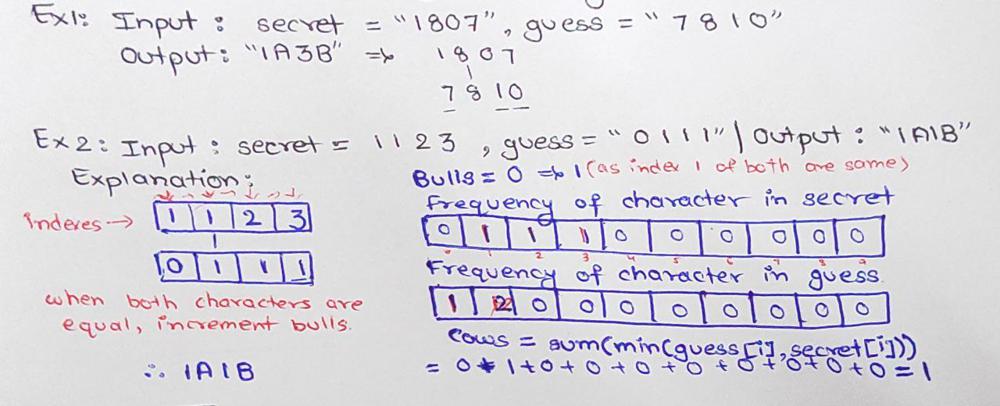 Ex1: Input : secret = "1807", guess = "7810"
Output: "1A3B" => 1 8 0 7
7 8 1 0
Ex2: Input : secret = 1123, guess = "0111" | Output : "1A1B"
Explanation:
Indexes →
1 1 2 3
0 1 1 1
when both characters are
equal, increment bulls.
∴ 1A1B
Bulls = 0 => 1 (as index 1 of both are same)
Frequency of character in secret
0 1 1 1 0 0 0 0 0 0
0 1 2 3 4 5 6 7 8 9
Frequency of character in guess
1 2 0 0 0 0 0 0 0 0
Cows = sum(min(guess[i], secret[i]))
= 0 + 1 + 0 + 0 + 0 + 0 + 0 + 0 + 0 + 0 = 1